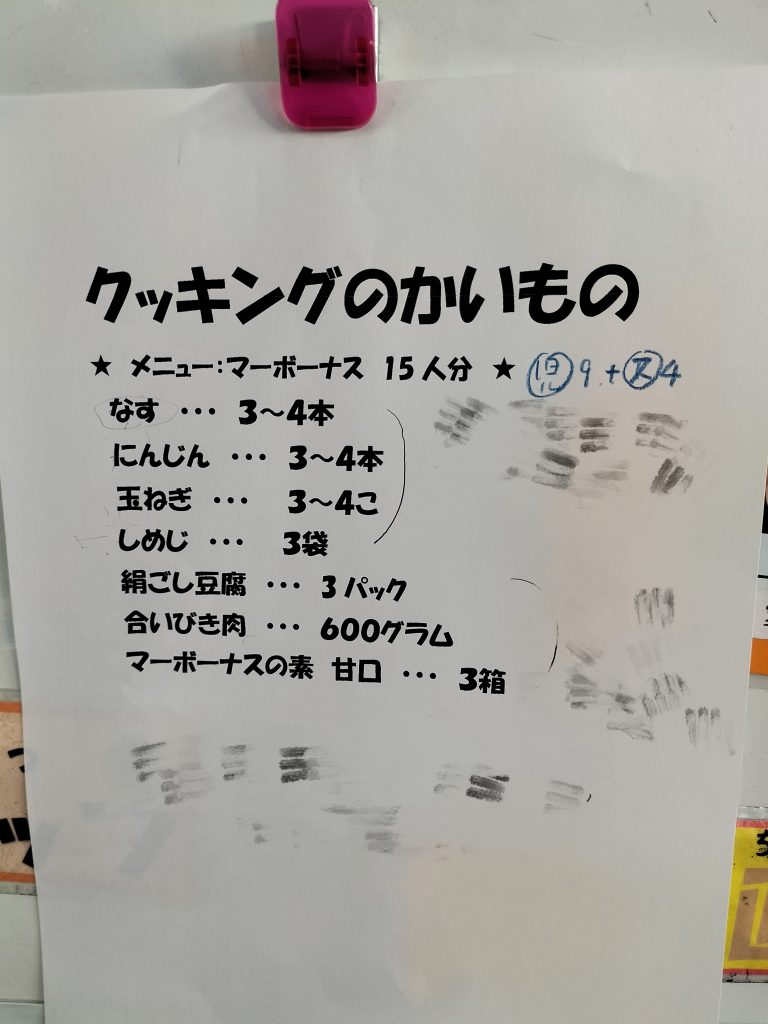 クッキングのかいもの
★ メニュー：マーボーナス 15人分 ★ 児9+ス4
なす ･･･ 3～4本
にんじん ･･･ 3～4本
玉ねぎ ･･･ 3～4こ
しめじ ･･･ 3袋
絹ごし豆腐 ･･･ 3パック
合いびき肉 ･･･ 600グラム
マーボーナスの素 甘口 ･･･ 3箱